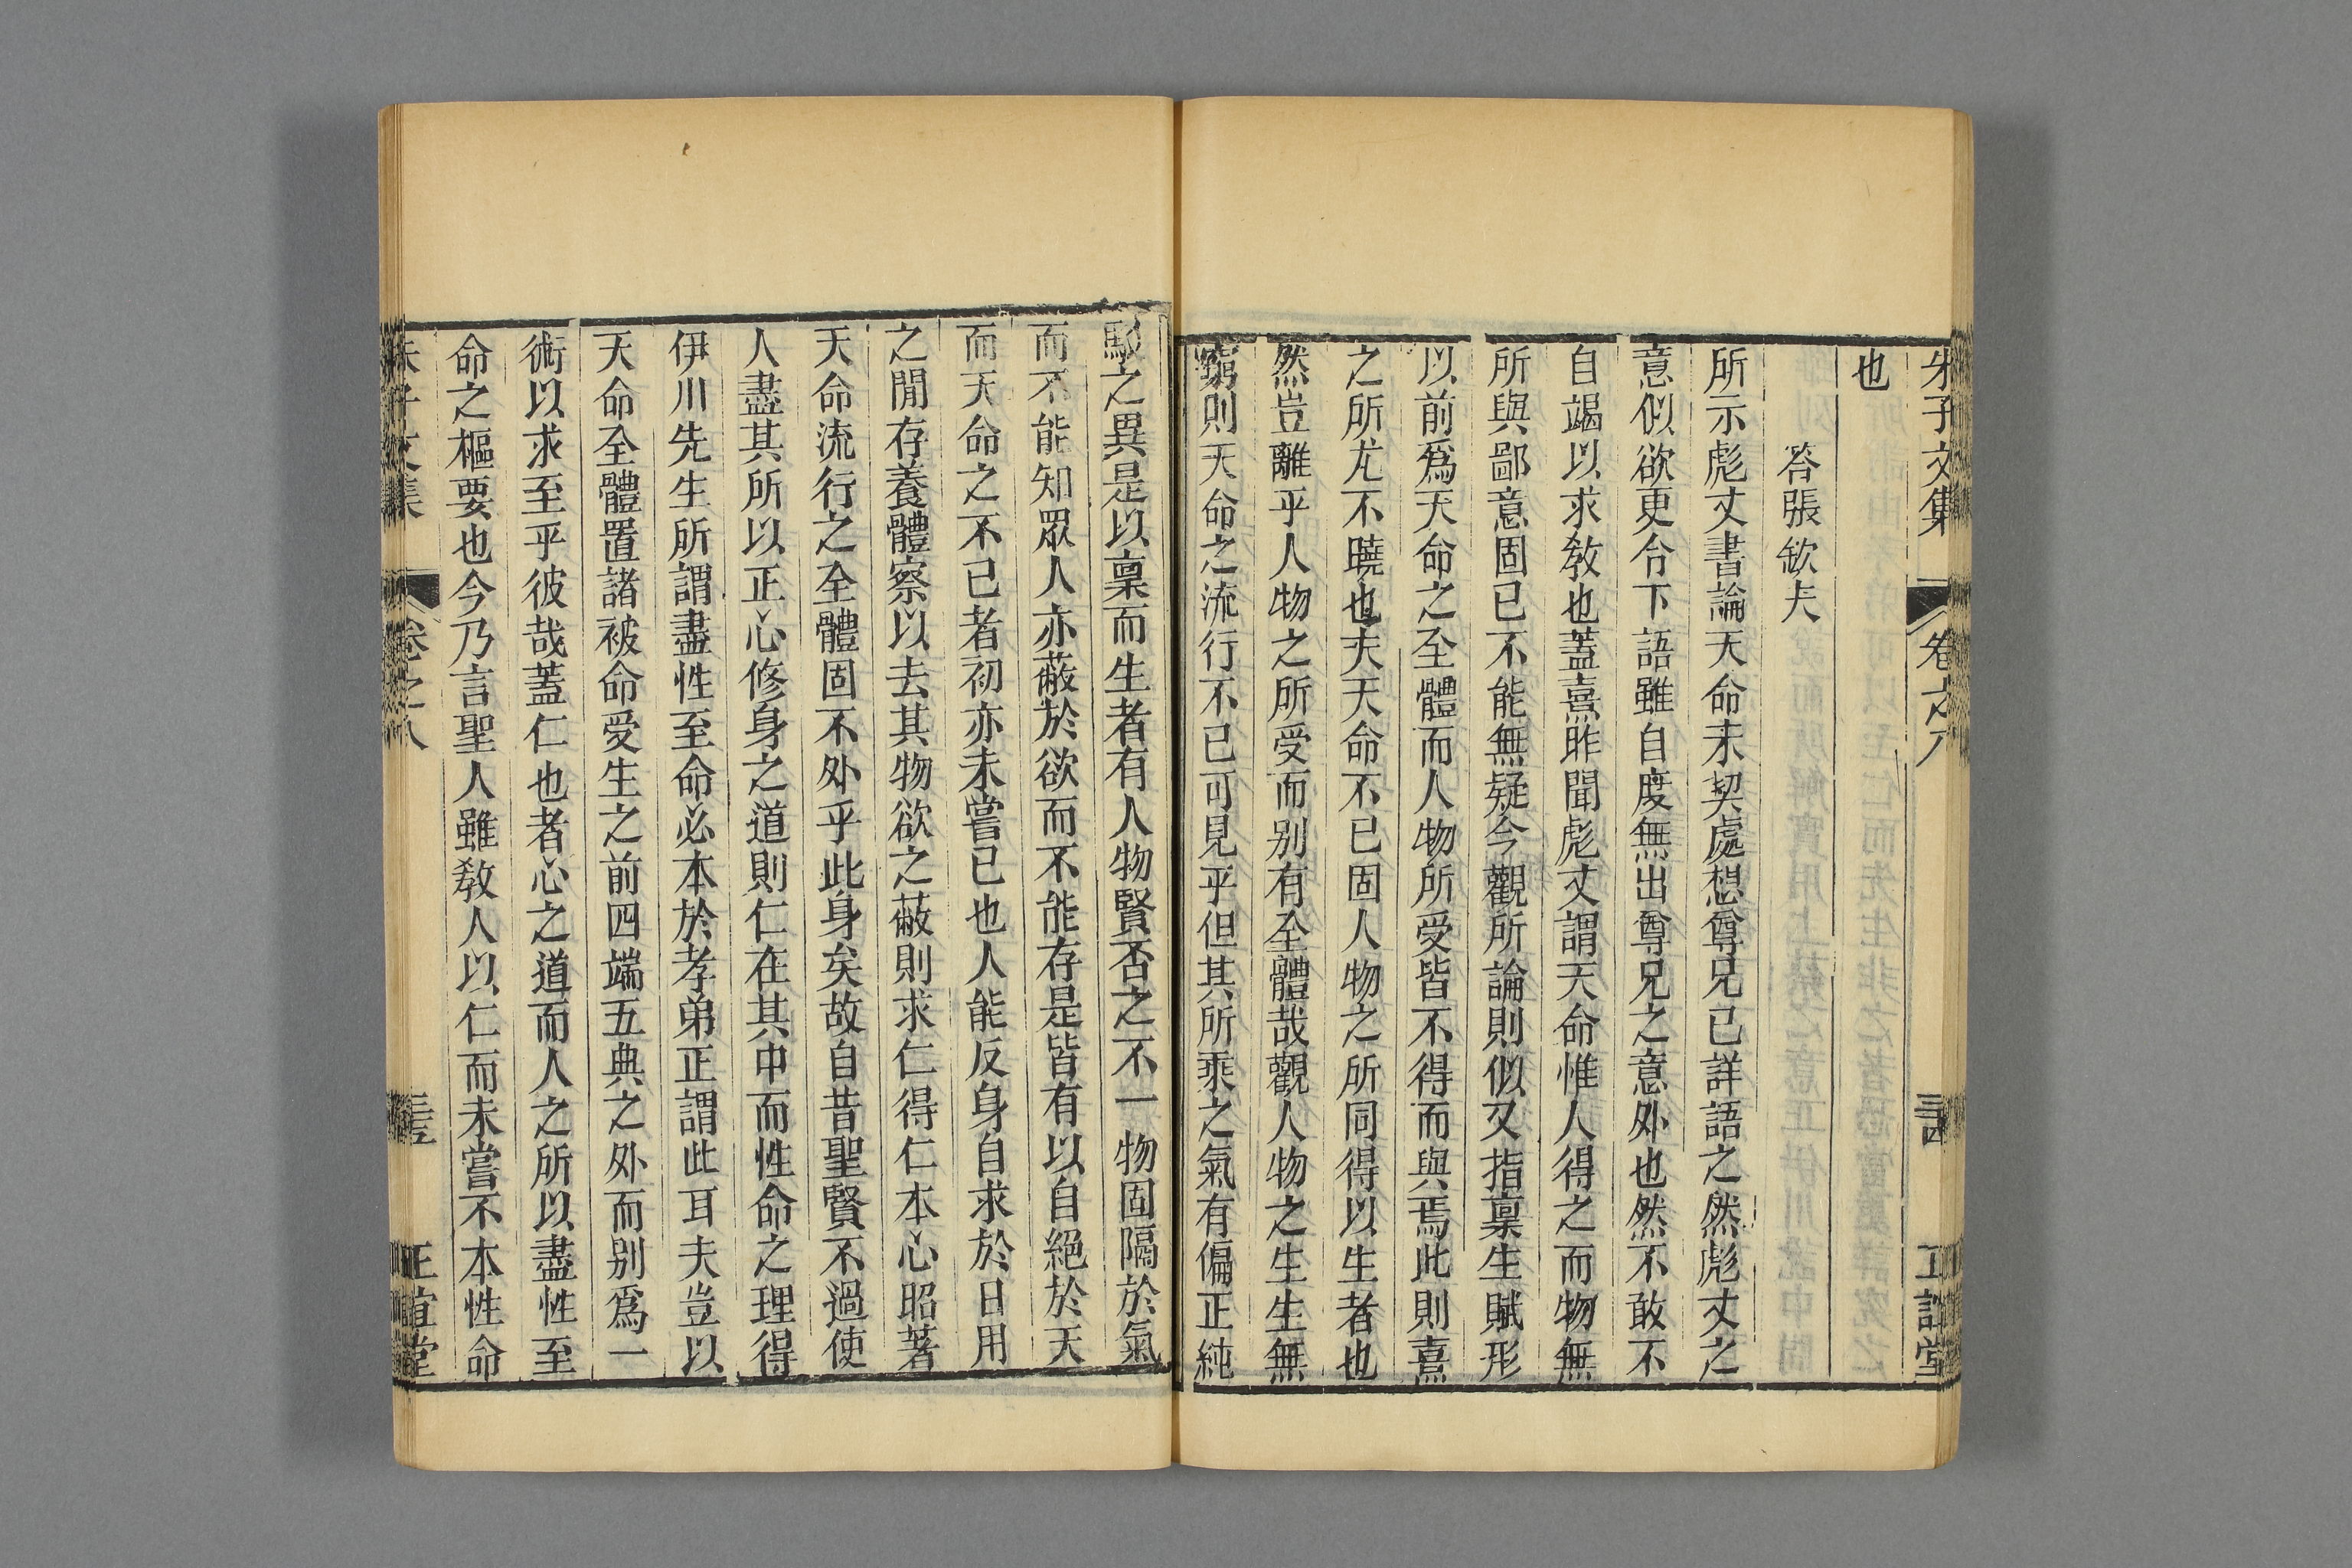 朱子文集 卷之八 正誼堂
也
答張欽夫
所示彪丈書論天命未契處想尊兄已詳語之然彪丈之
意似欲更令下語雖自度無出尊兄之意外也然不敢不
自竭以求教也蓋熹昨聞彪丈謂天命惟人得之而物無
所與鄙意固已不能無疑今觀所論則似又指稟生賦形
以前爲天命之全體而人物所受皆不得而與焉此則熹
之所尤不曉也夫天命不已固人物之所同得以生者也
然豈離乎人物之所受而别有全體哉觀人物之生生無
窮則天命之流行不已可見乎但其所乘之氣有偏正純
駁之異是以稟而生者有人物賢否之不一物固隔於氣
而不能知眾人亦蔽於欲而不能存是皆有以自絕於天
而天命之不已者初亦未嘗已也人能反身自求於日用
之閒存養體察以去其物欲之蔽則求仁得仁本心昭著
天命流行之全體固不外乎此身矣故自昔聖賢不過使
人盡其所以正心修身之道則仁在其中而性命之理得
伊川先生所謂盡性至命必本於孝弟正謂此耳夫豈以
天命全體置諸被命受生之前四端五典之外而别爲一
術以求至乎彼哉蓋仁也者心之道而人之所以盡性至
命之樞要也今乃言聖人雖教人以仁而未嘗不本性命
朱子文集 卷之八 正誼堂